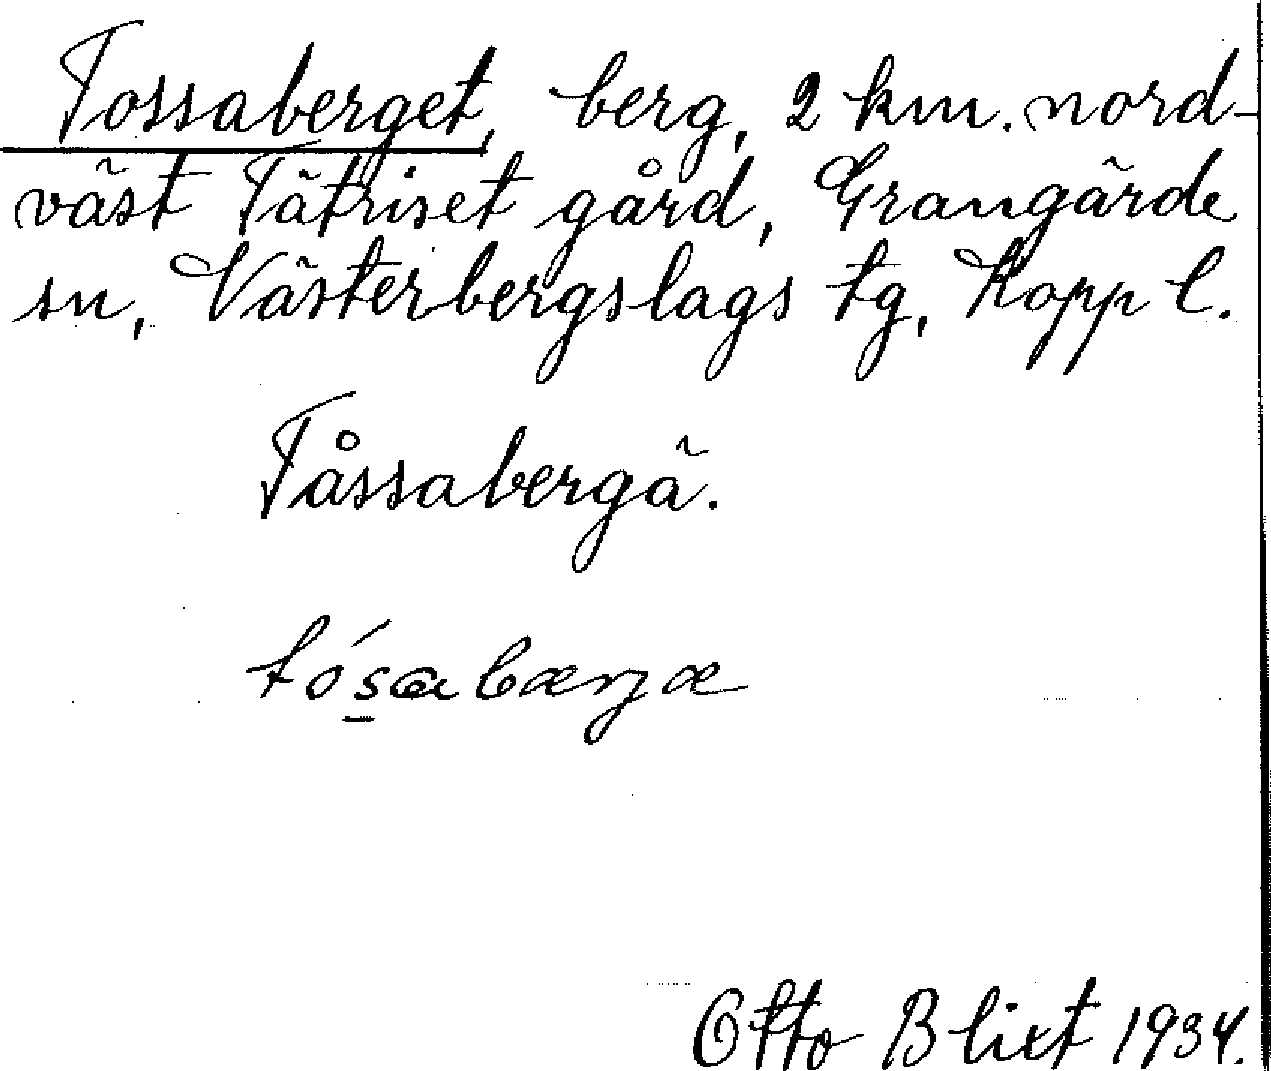 Tossaberget, berg, 2 km. nord-
väst Tätriset gård, Grangärde
sn, Västerbergslags tg, Kopp l.
Tåssabergä.
tósabærgæ
Otto Blixt 1934.